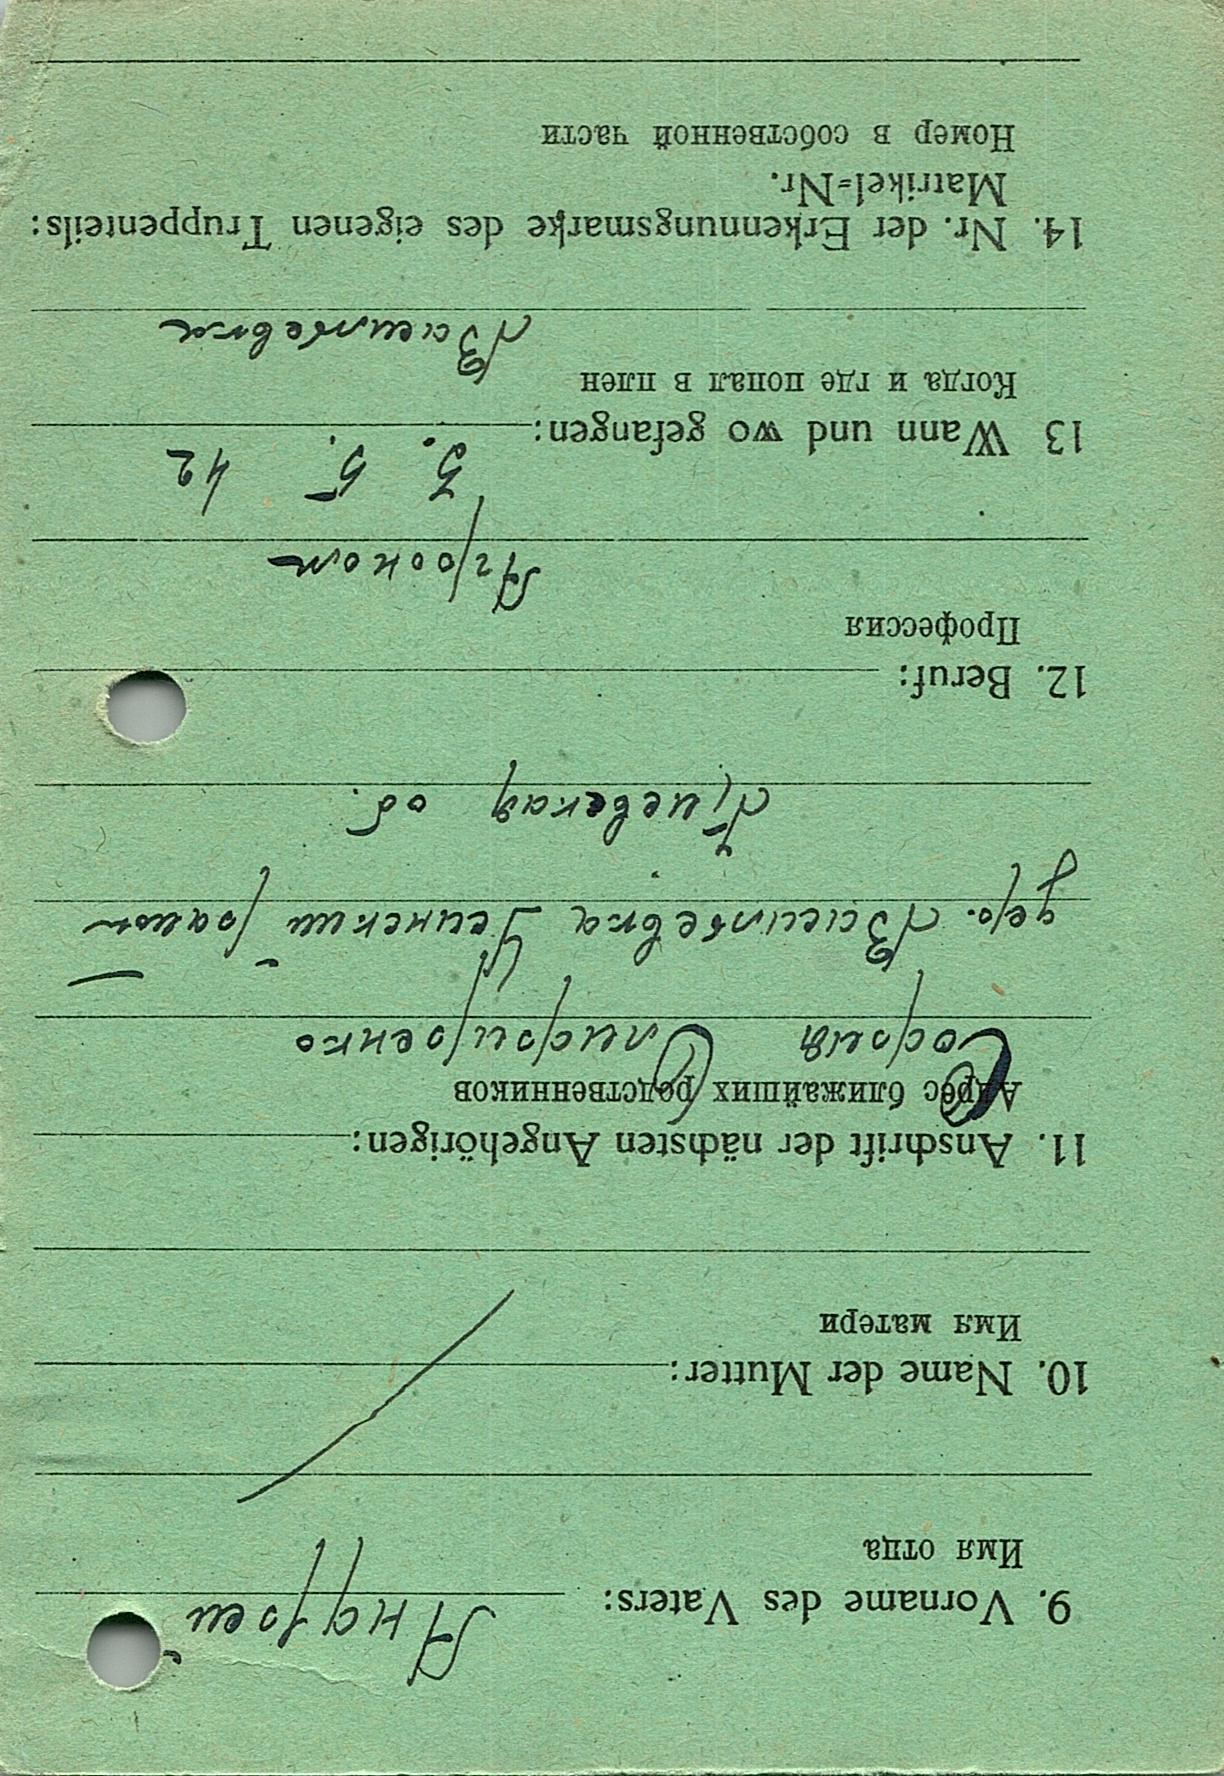 9. Vorname des Vaters:
Имя отца
Андрей
10. Name der Mutter:
Имя матери
11. Anschrift der nächsten Angehörigen:
Адрес ближайших родственников
София Олифиренко
дер. Васильевка район
об.
12. Beruf:
Профессия
Агроном
13 Wann und wo gefangen:
5. 5. 42
Когда и где попал в плен
Васильевка
14. Nr. der Erkennungsmarke des eigenen Truppenteils:
Matrikel=Nr.
Номер в собственной части